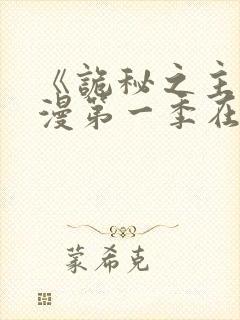 《诡秘之主
漫第一季在
蒙希克